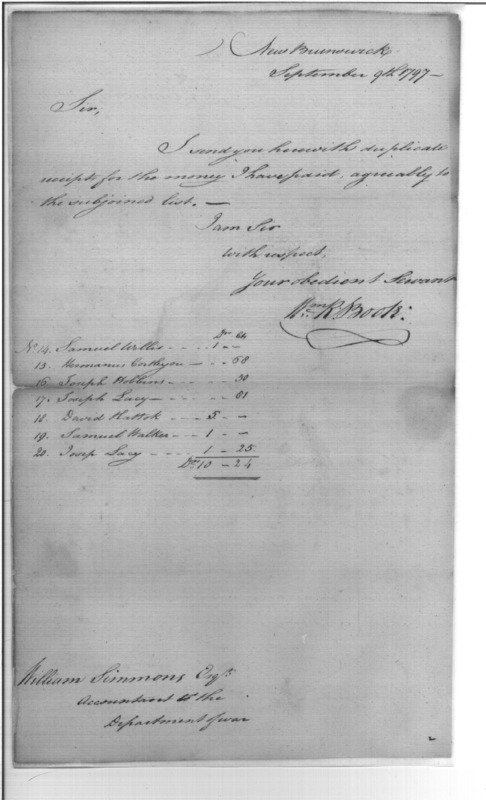 New Brunswick,
September 9th. 1797 —
Sir,
I send you herewith duplicate
receipts for the money I have paid, agreeably to
the subjoined list. —
I am Sir
with respect,
Your obedient Servant
Wm R. Boote:
No. 14. Samuel Willis - - - - 1 - -
15. Hermanus - - - 68
16. Joseph Robbins - - - - 30
17. Joseph Lacy - - - - 81
18. David - - - 5 - -
19. Samuel Walker - - 1 - -
20. Josep Lacy - - - - 1 - 25.
10 - 24
William Simmons Esqr.
Accountant to the
Department of war
2